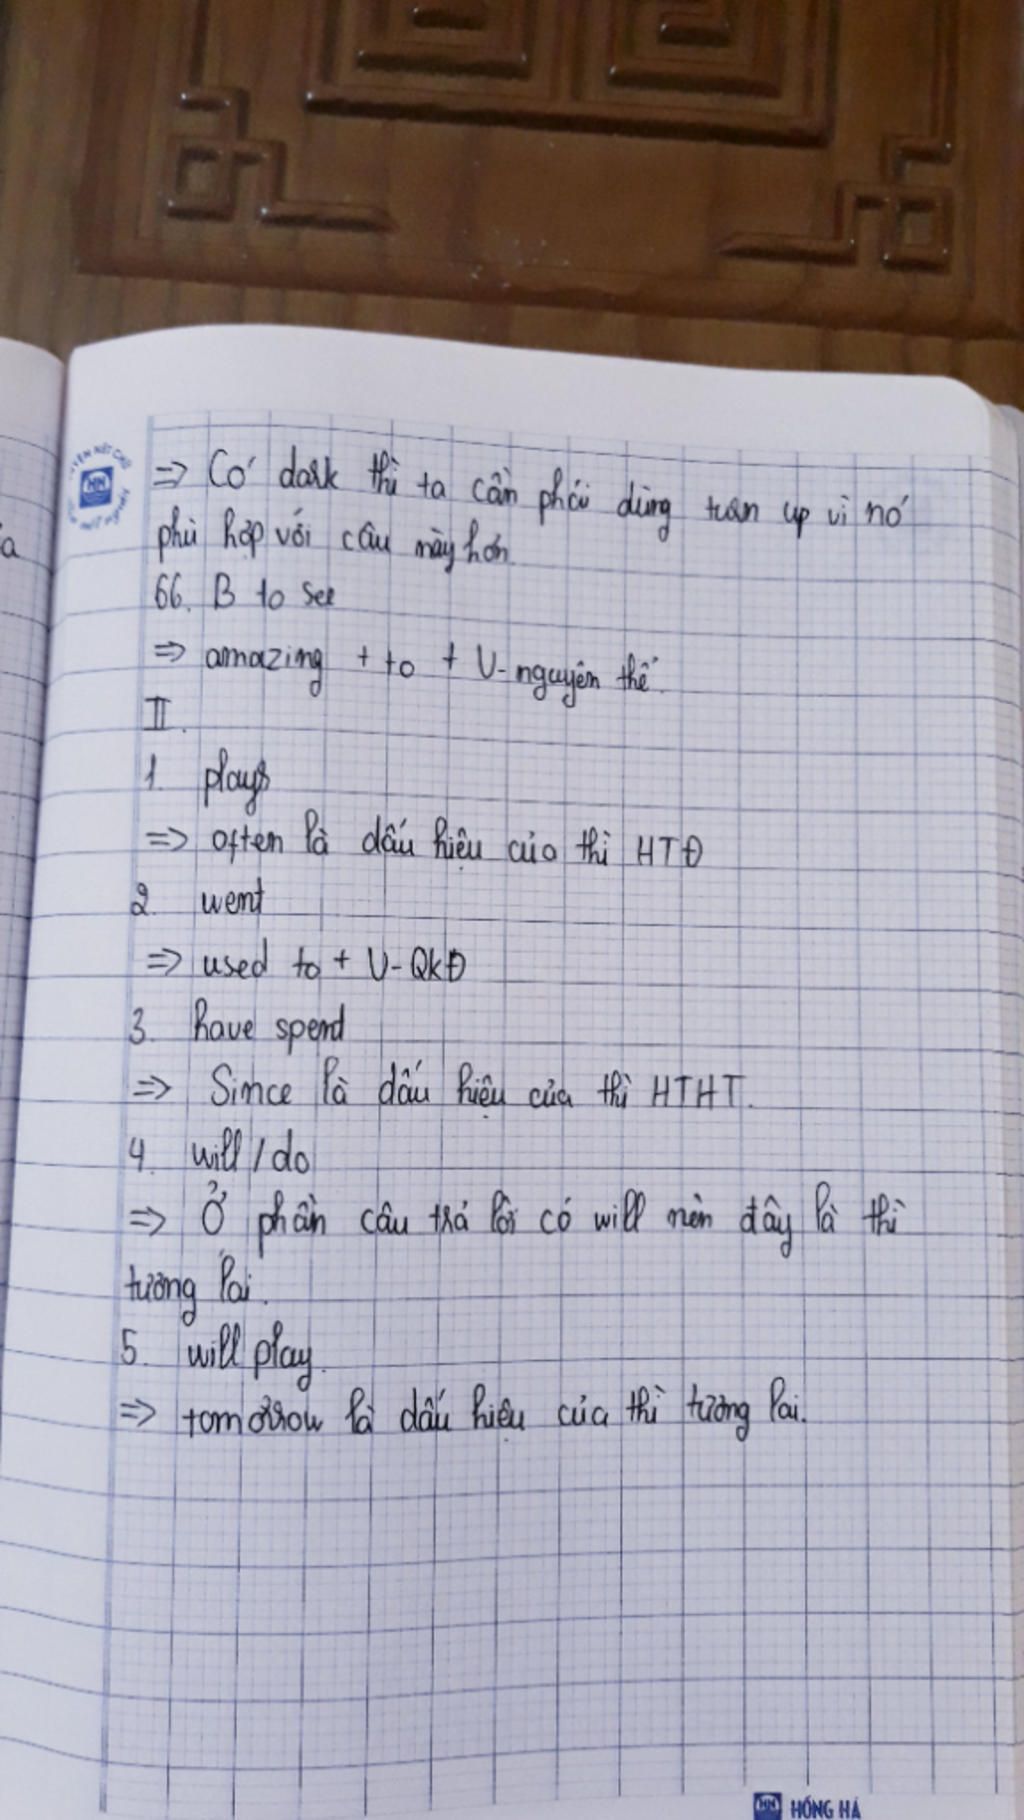 ⇒ Có dark thì ta cần phải dùng turn up vì nó
phù hợp với câu này hơn.
66. B to see
⇒ amazing + to + V-nguyên thể.
II.
1. plays
⇒ often là dấu hiệu của thì HTĐ
2. went
⇒ used to + V-QkĐ
3. have spend
⇒ Since là dấu hiệu của thì HTHT.
4. will / do
⇒ Ở phần câu trả lời có will nên đây là thì
tương lai.
5. will play.
⇒ tomorrow là dấu hiệu của thì tương lai.
HỒNG HÀ